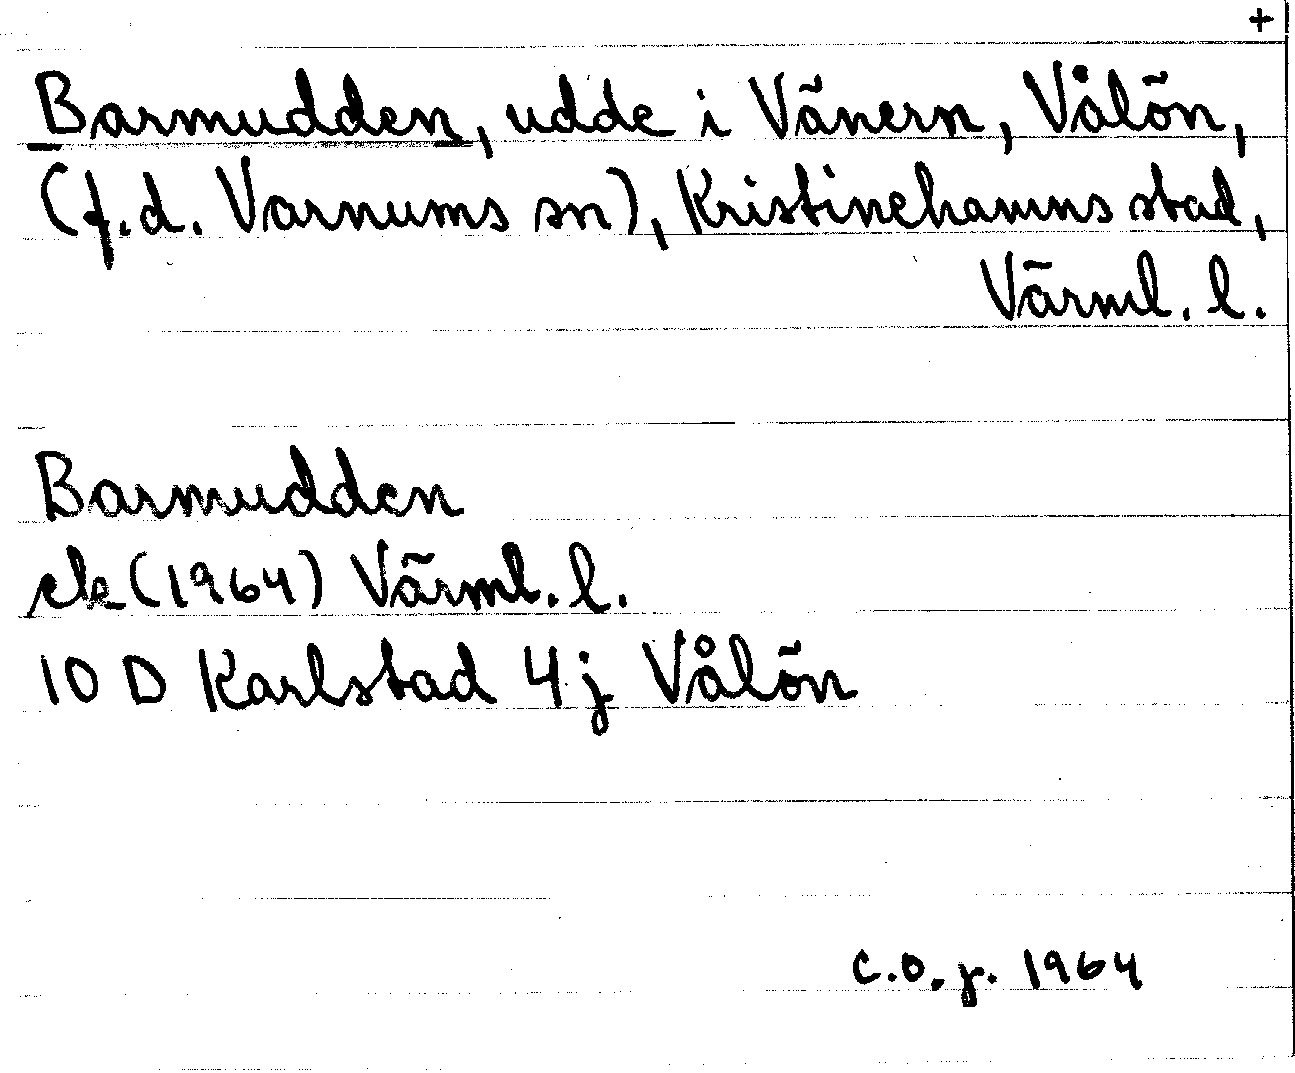 +
Barmudden, udde i Vänern, Vålön,
(f.d. Varnums sn), Kristinehamns stad,
Värml. l.
Barmudden
ek (1964) Värml. l.
10 D Karlstad 4j Vålön
C.O.J. 1964